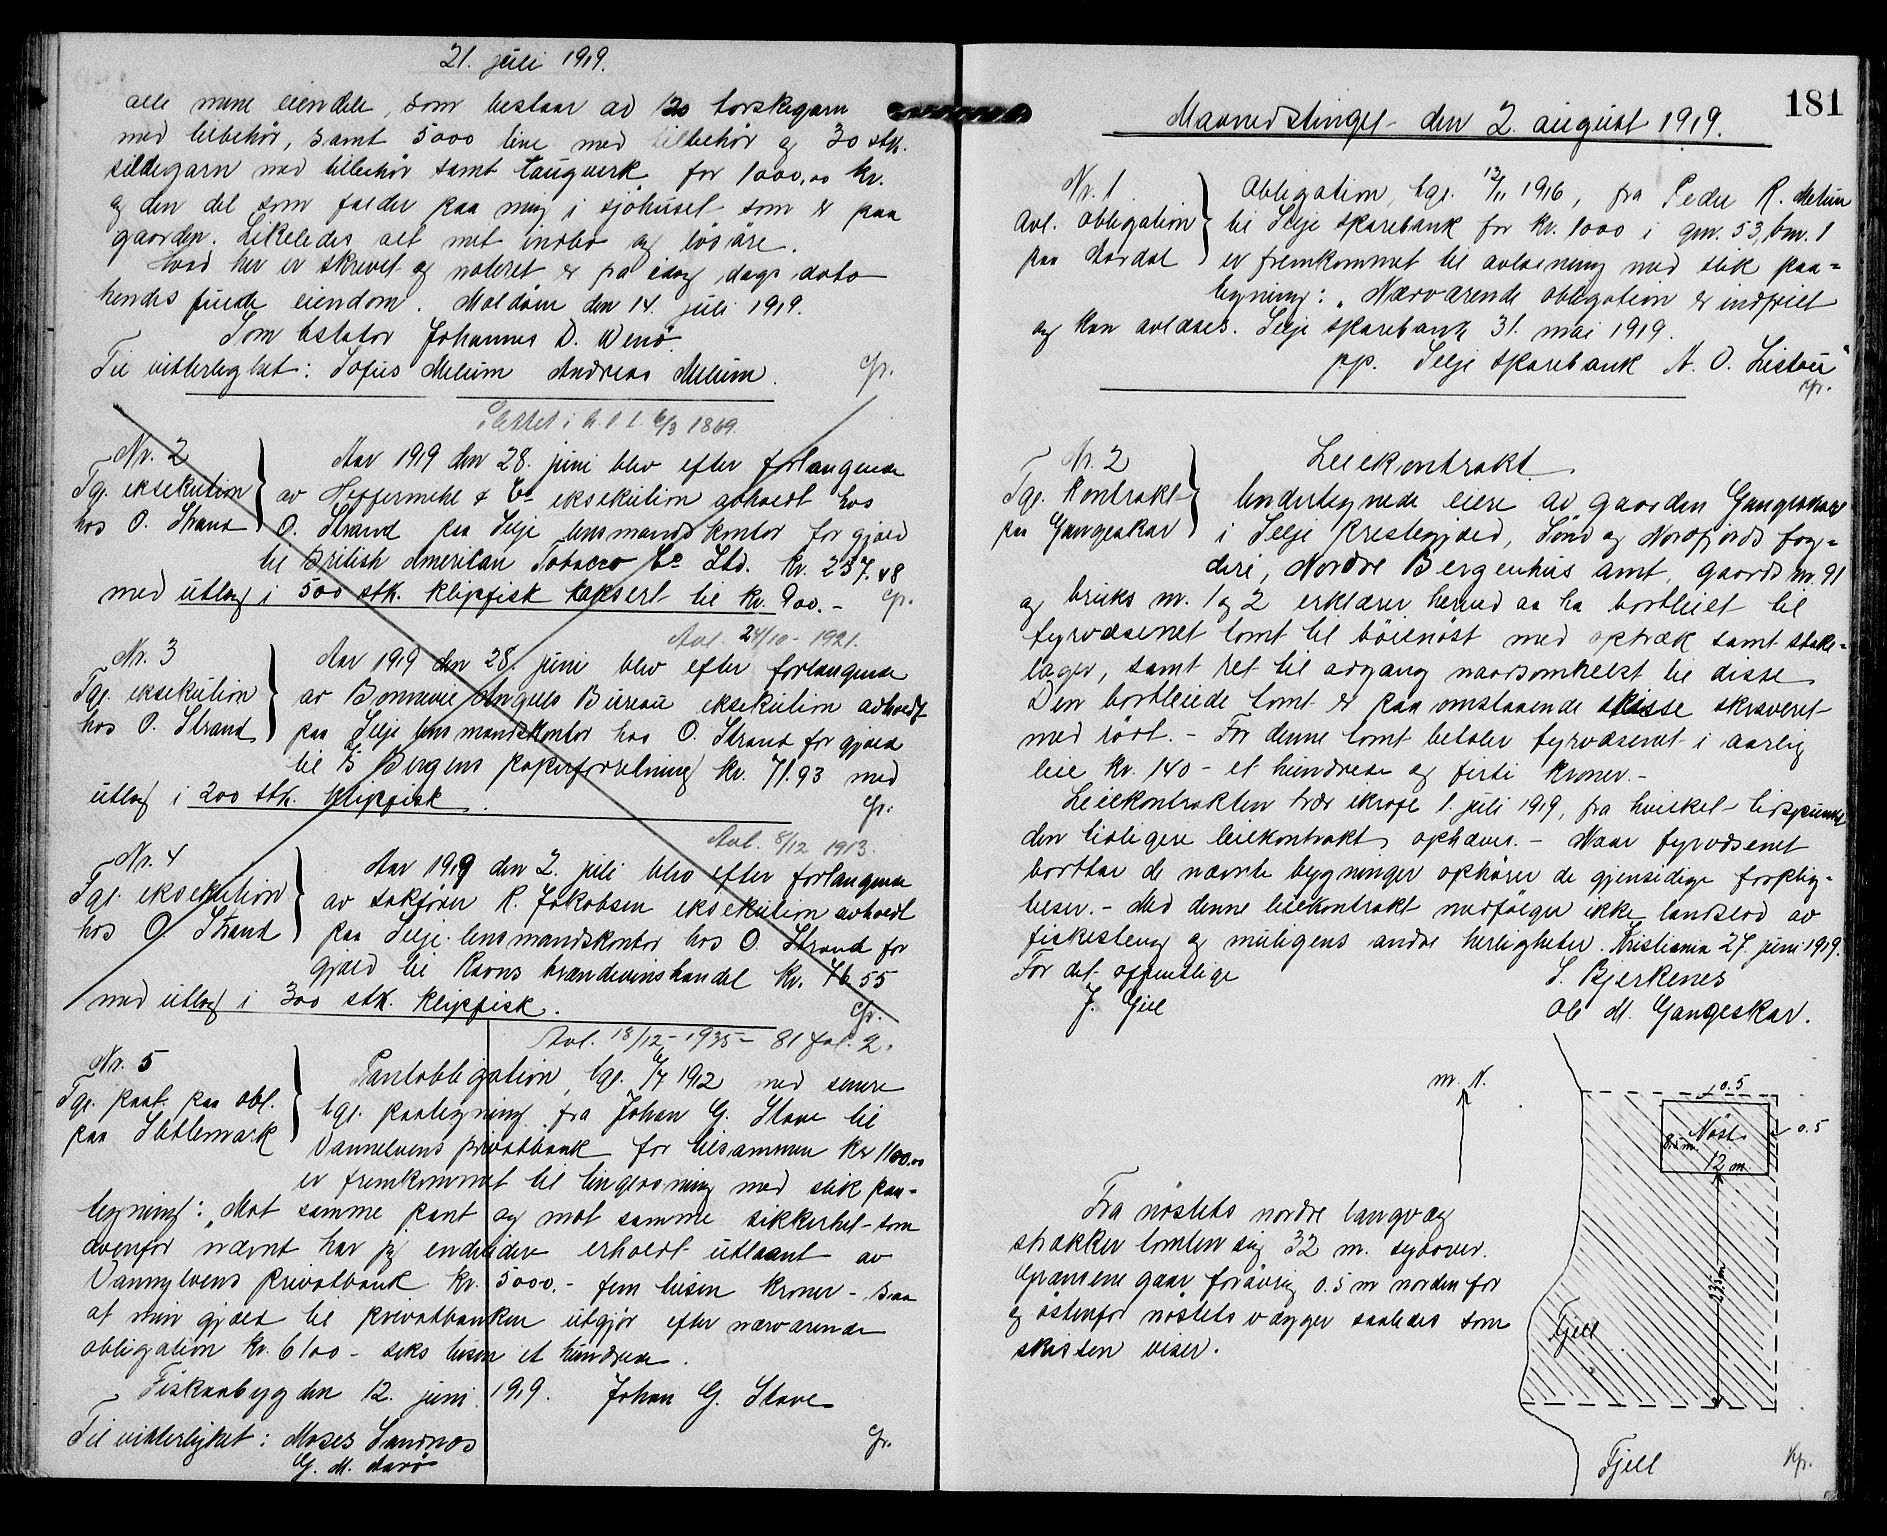 21. juli 1919.
alle mine eiendele, som bestaar av 120 torskegarn
med tilbehör, samt 5000 line med tilbehör og 30 stk.
sildegarn med tilbehör samt taugverk for 1000,00 kr.
og den del som falder paa mig i sjöhuset som er paa
gaarden. Likeledes alt mit indbo og lösöre.
Hvad her er skrevet og noteret er fra idag dags dato
hendes fulde eiendom. Maldöen den 14. juli 1919.
Som testator Johannes D. Wenö.
Til vitterlighet: Sofus Melum Andreas Melum.
Slettet i h. t. l. 6/3 1869.
Nr. 2
Tgl. eksekution
hos O. Strand
Aar 1919 den 28. juni blev efter forlangende
av Heffermehl & Co eksekution avholdt hos
O. Strand paa Selje lensmandskontor for gjæld
til British American Tobacco Co Ltd. kr. 237.48
med utlæg i 500 stk. klipfisk taksert til kr. 900.-
Avl. 24/10 - 1921.
Nr. 3
Tgl. eksekution
hos O. Strand
Aar 1919 den 28. juni blev efter forlangende
av Bonnevie Angells Bureau eksekution avholdt
paa Selje lensmandskontor hos O. Strand for gjæld
til Bergens papirforretning kr. 71.93 med
utlæg i 200 stk. klipfisk.
Avl. 8/12 1913.
Nr. 4
Tgl. eksekution
hos O. Strand
Aar 1919 den 2. juli blev efter forlangende
av sakförer R. Jakobsen eksekution avholdt
paa Selje lensmandskontor hos O. Strand for
gjæld til Ravns brændevinshandel kr. 76.55
med utlæg i 300 stk. klipfisk.
Avl. 18/12 - 1935 - 81 fol. 2.
Nr. 5
Tgl. paat. paa obl.
paa Slettemark
Pantobligation, tgl. 1912 med senere
tgl. paategning fra Johan G. Stave til
Vannelvens privatbank for tilsammen kr 1100.00
er fremkommet til tinglæsning med slik paa-
tegning: "Mot samme pant og mot samme sikkerhet som
ovenfor nævnt har jeg endvidere erholdt utlaant av
Vannylvens privatbank kr. 5000.- fem tusen kroner - saa
at min gjæld til privatbanken utgjör efter nærværende
obligation kr. 6100 - seks tusen et hundrede.
Fiskaabygd den 12. juni 1919. Johan G. Stave
Til vitterlighet: Moses Sandnes
G. M. Aarö
181
Maanedstinget den 2. august 1919.
Nr. 1
Avl. obligation
paa Nordal
Obligation, tgl. 12/11 1916, fra Peder R. Melum
til Selje sparebank for kr. 1000 i gnr. 53, bnr. 1
er fremkommet til avlæsning med slik paa-
tegning: "Nærværende obligation er indfriet
og kan avlæses. Selje sparebank 31. mai 1919.
p.p. Selje sparebank A. O. Listou"
Nr. 2
Tgl. kontrakt
paa Gangeskar
Leiekontrakt.
Undertegnede eiere av gaarden Gangeskar
i Selje prestegjeld, Sönd og Nordfjords fog-
deri, Nordre Bergenhus amt, gaards nr. 91
og bruks nr. 1 og 2 erklærer herved aa ha bortleiet til
fyrvæsenet tomt til böienöst med optræk samt stake-
lager, samt ret til adgang naarsomhelst til disse.
Den bortleiede tomt er paa omstaaende skisse skraveret
med rödt. - For denne tomt betaler fyrvæsenet i aarlig
leie kr. 140 - et hundrede og firti kroner.-
Leiekontrakten trær ikraft 1. juli 1919, fra hvilket tidspunkt
den tidligere leiekontrakt ophæves. - Naar fyrvæsenet
borttar de nævnte bygninger ophörer de gjensidige forplig-
telser. - Med denne leiekontrakt medfölger ikke landslod av
fiskesteng og muligens andre herligheter. Kristiania 27. juni 1919.
For det offentlige
J. Gill
S. Bjerkenes
Ole M. Gangeskar.
m. N.
0.5
Nöst
12 m.
0.5
Fra nöstets nordre langvæg
strækker tomten sig 32 m. sydover.
Grænsene gaar forövrig 0.5 m nordenfor
og östenfor nöstets vægger saaledes som
skissen viser.
Fjell
Fjell